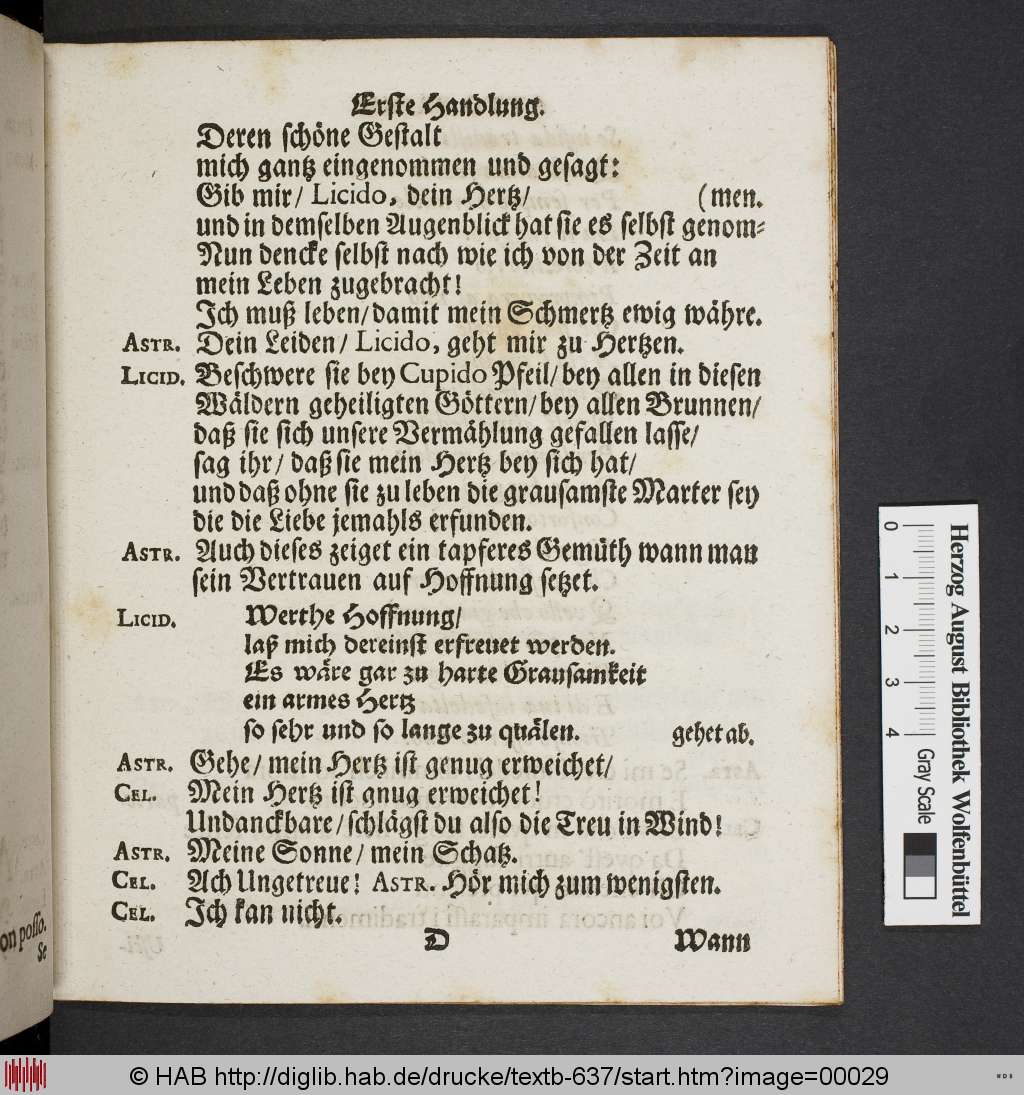 Erste Handlung.
Deren schöne Gestalt
mich gantz eingenommen und gesagt:
Gib mir/ Licido, dein Hertz/ (men.
und in demselben Augenblick hat sie es selbst genom-
Nun dencke selbst nach wie ich von der Zeit an
mein Leben zugebracht!
Ich muß leben/damit mein Schmertz ewig währe.
ASTR. Dein Leiden/ Licido, geht mir zu Hertzen.
LICID. Beschwere sie bey Cupido Pfeil/bey allen in diesen
Wäldern geheiligten Göttern/bey allen Brunnen/
daß sie sich unsere Vermählung gefallen lasse/
sag ihr/ daß sie mein Hertz bey sich hat/
und daß ohne sie zu leben die grausamste Marter sey
die die Liebe jemahls erfunden.
ASTR. Auch dieses zeiget ein tapferes Gemüth wann man
sein Vertrauen auf Hoffnung setzet.
LICID. Werthe Hoffnung/
laß mich dereinst erfreuet werden.
Es wäre gar zu harte Grausamkeit
ein armes Hertz
so sehr und so lange zu quälen. gehet ab.
ASTR. Gehe/ mein Hertz ist genug erweichet/
CEL. Mein Hertz ist gnug erweichet!
Undanckbare/schlägst du also die Treu in Wind!
ASTR. Meine Sonne/ mein Schatz.
CEL. Ach Ungetreue! ASTR. Hör mich zum wenigsten.
CEL. Ich kan nicht.
D Wann
on posso.
Se
Herzog August Bibliothek Wolfenbüttel
0 1 2 3 4 Gray Scale
© HAB http://diglib.hab.de/drucke/textb-637/start.htm?image=00029